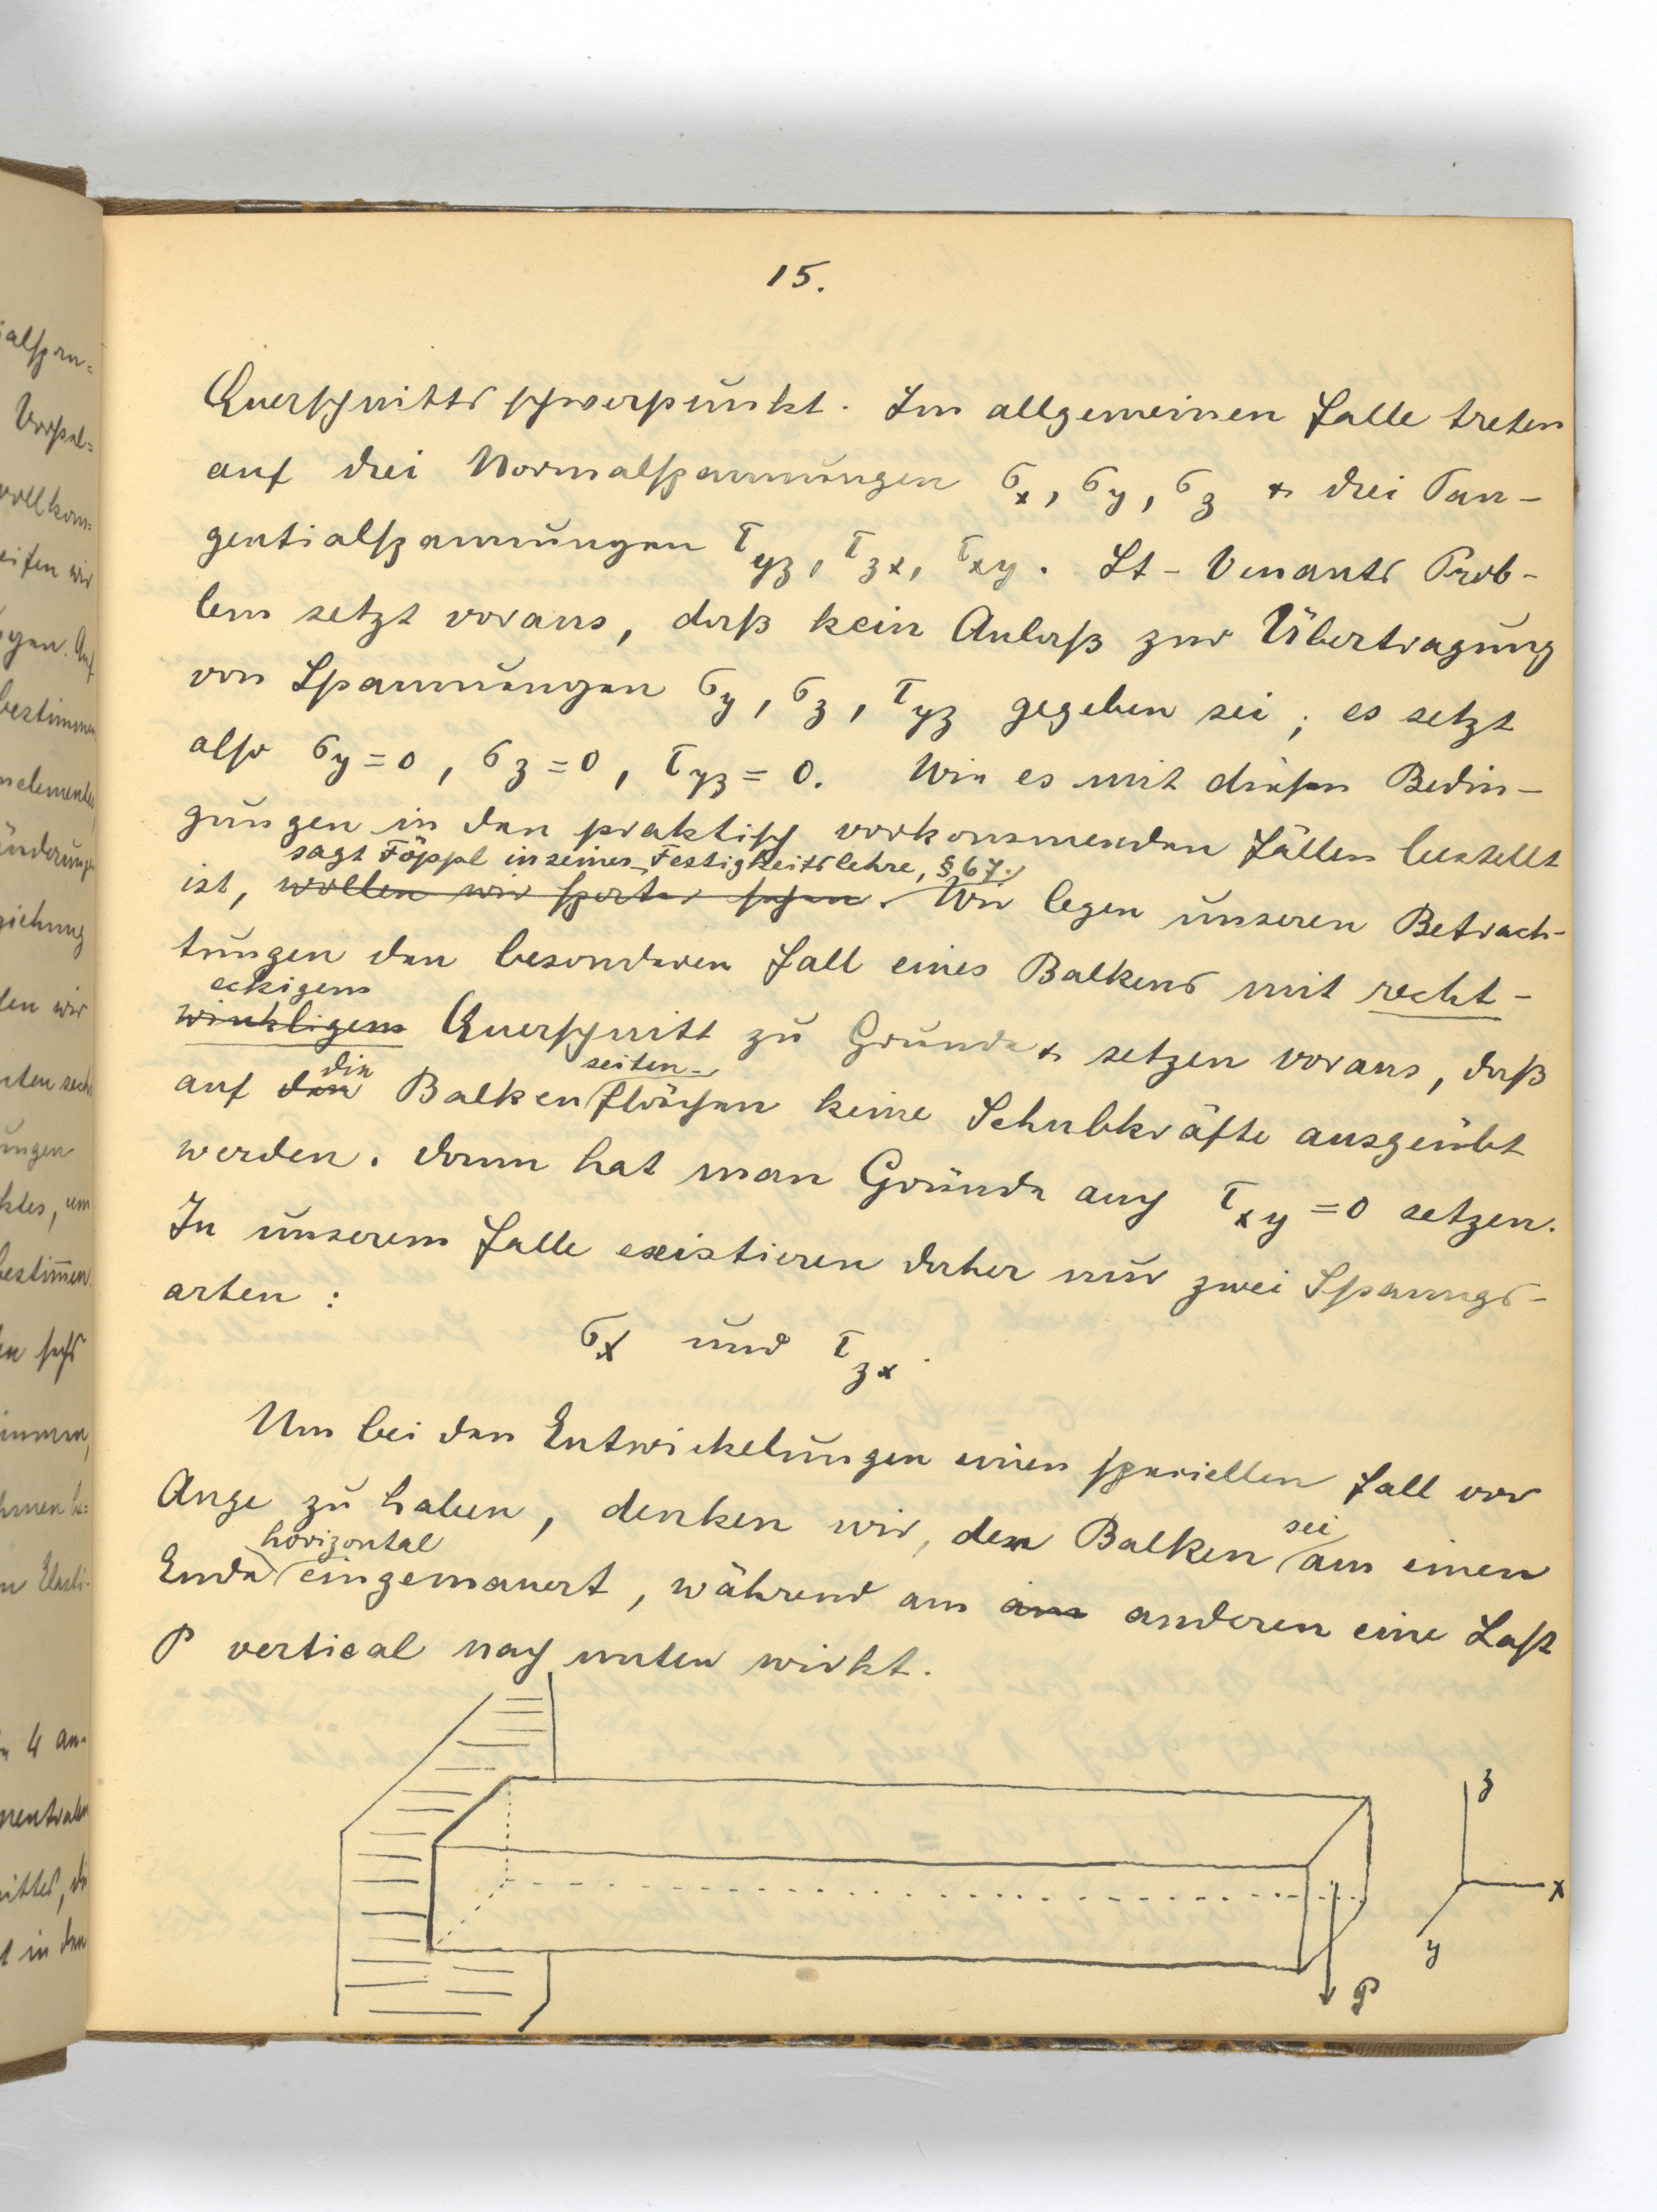 15.
Querschnittsschwerpunkt. Im allgemeinen Falle treten
auf drei Normalspannungen σx, σy, σz & drei Tan-
gentialspannungen τyz, τzx, τxy. St-Venants Prob-
lem setzt voraus, daß kein Anlaß zur Übertragung
von Spannungen σy, σz, τyz gegeben sei; es setzt
also σy=0, σz=0, τyz=0. Wie es mit diesen Bedin-
gungen in den praktisch vorkommenden Fällen bestellt
sagt Föppl in seiner Festigkeitslehre, § 67.
ist, wollen wir später sehen. Wir legen unseren Betrach-
tungen den besonderen Fall eines Balkens mit recht-
eckigem
winkligem Querschnitt zu Grunde & setzen voraus, daß
die seiten-
auf den Balkenflächen keine Schubkräfte ausgeübt
werden. Dann hat man Gründe auch τxy=0 setzen.
In unserem Falle existieren daher nur zwei Spanngs-
arten:
σx und τzx.
Um bei den Entwickelungen einen speciellen Fall vor
Auge zu haben, denken wir, der Balken am einen
sei
horizontal
Ende eingemauert, während am am anderen eine Last
P vertical nach unten wirkt.
z
x
y
P
ialspan=
Vorspal=
vollkom=
eifen wir
gen. Auf
bestimmen
nelementes,
änderungen
ziehung
len wir
ungen
ktes, um
bestim̅en.
en sechs
immen,
hmen be=
n Elasti-
4 an-
nittes, di
t in den